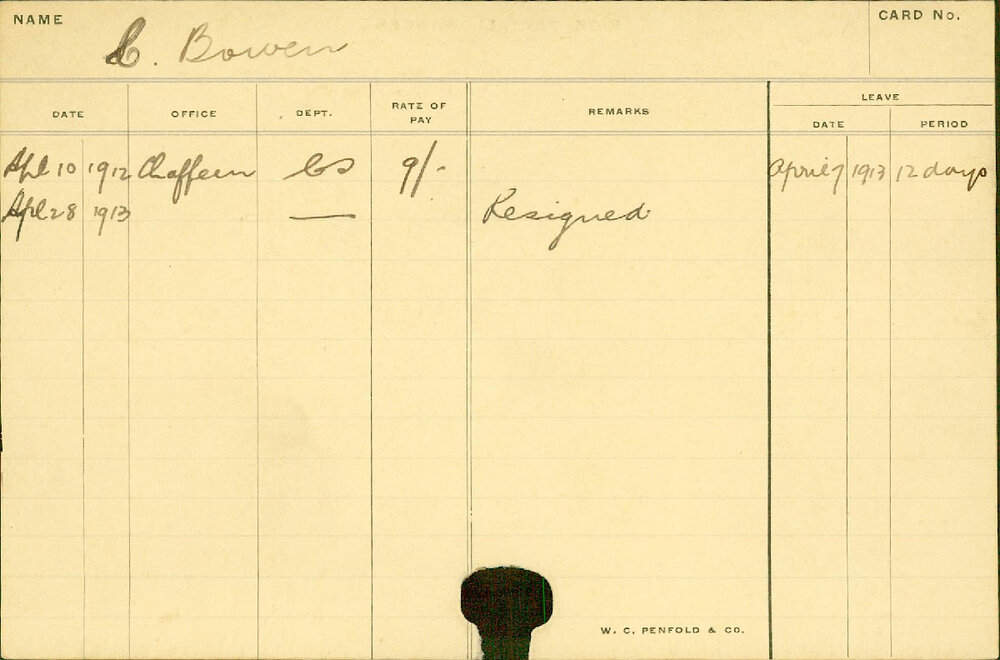 NAME
C. Bowen
CARD No.
DATE OFFICE DEPT. RATE OF PAY REMARKS LEAVE
DATE PERIOD
Apl 10 1912 Chaffeur CS 9/- April 7 1913 12 days
Apl 28 1913 — Resigned
W. C. PENFOLD & CO.